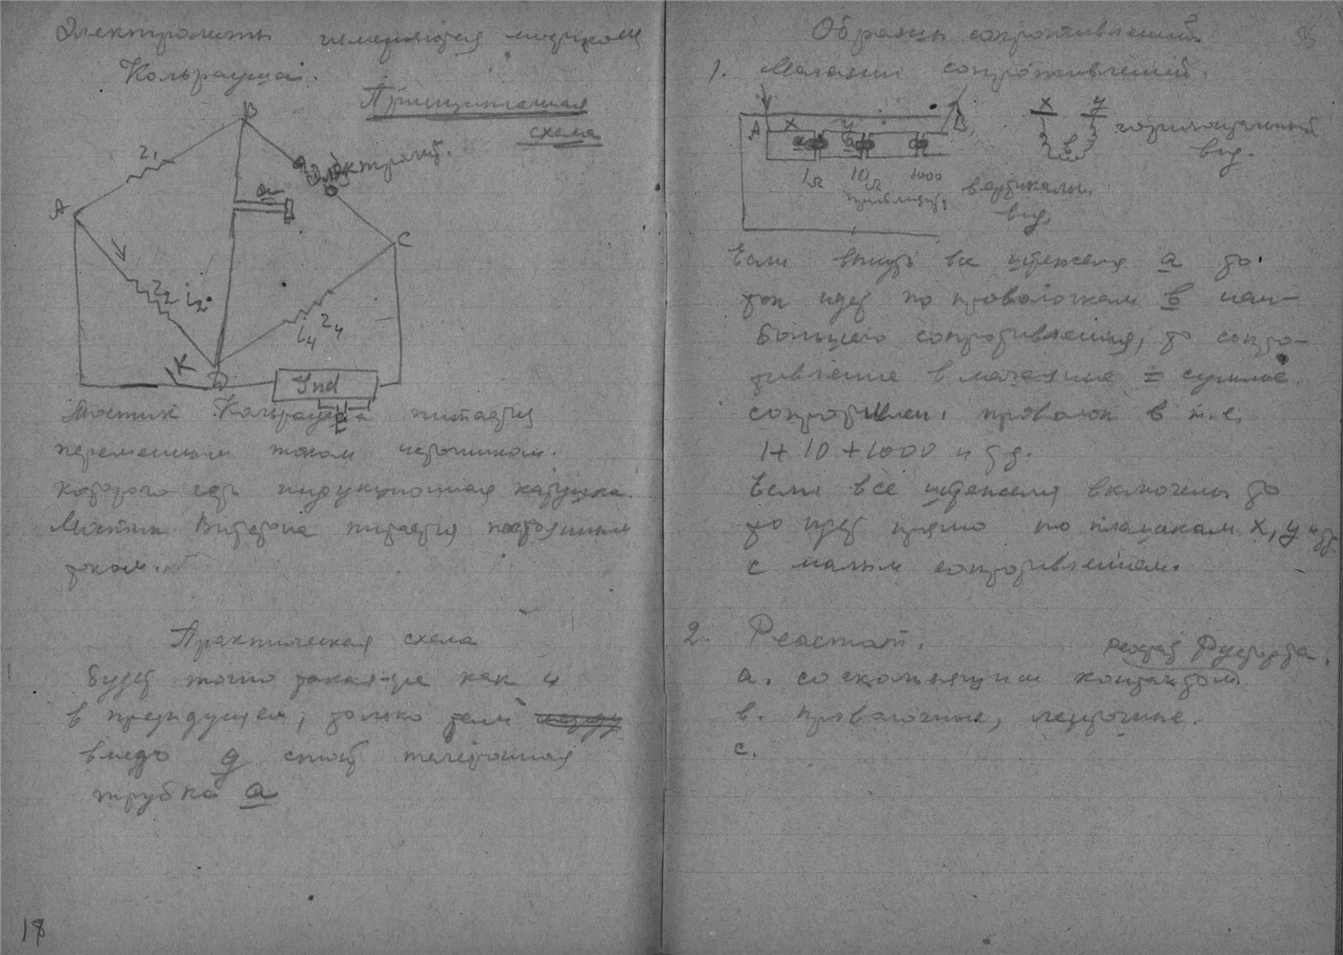 Электролиты измеряются мостиком
Кольрауша.
Принципиальная
схема
B
r₁
электролит.
a
A
C
r₂ i₂
i₄ r₄
K
D
Ind
Мостик Кольрауша питается
переменным током источником.
которого есть индукционная катушка.
Мостик Витстона питается постоянным
током.
Практическая схема
Будет точно такая-же как и
в предыдущем, только там
вместо g стоит телефонная
трубка a
18
Образцы сопротивлений.
1. Магазин сопротивлений.
A x y B
a a
1Ω 10Ω 1000
вертикальн.
вид.
x y
b
горизонтальный
вид.
Если вынуть все штепселя a то
ток идет по проволочкам b наи-
большего сопротивления, то сопро-
тивление в магазине = сумме
сопротивлен. проволок b т.е.
1+10+1000 и т.д.
Если все штепселя включены то
то идет прямо по планкам x, y и т.д.
с малым сопротивлением.
2. Реостат.
реостат Рустрата.
a. со скользящим контактом.
b. проволочные, ленточные.
c.